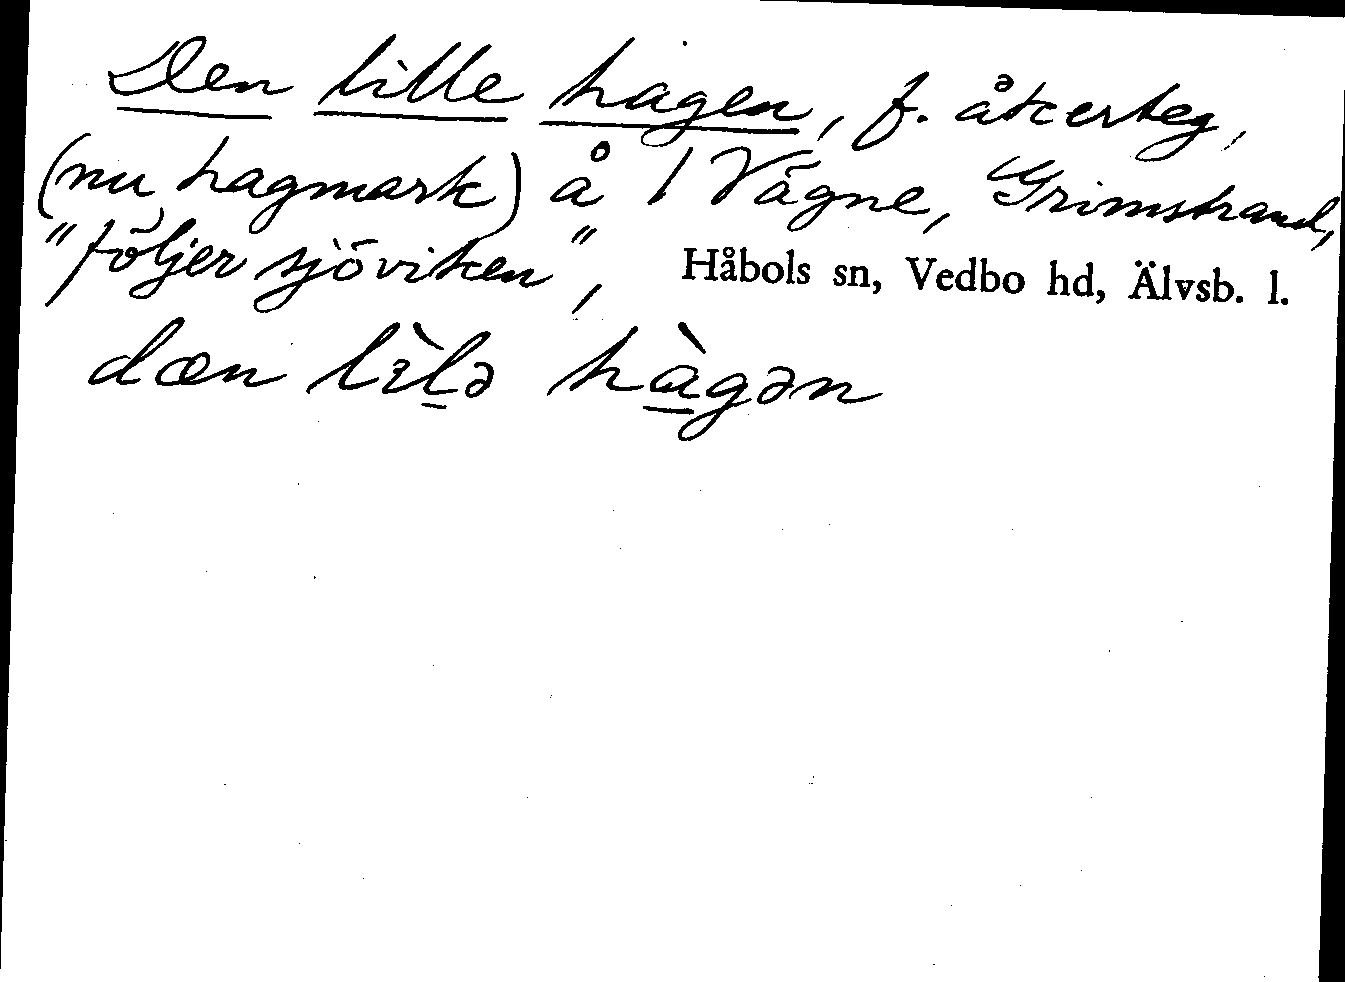 Den lille hagen, f. åkerteg,
(nu hagmark) å 1 Vägne, Grimstrand,
"följer sjöviken", Håbols sn, Vedbo hd, Älvsb. l.
dæn lìlə hàgən